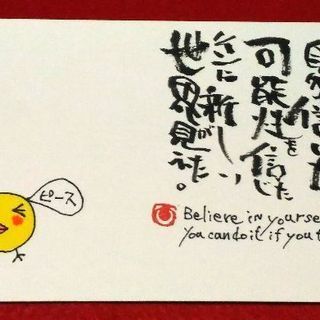 自分信じた
可能性を信じた
そこに新しい
世界が見えた。
ピース
Believe in yourse
You can do it if you t